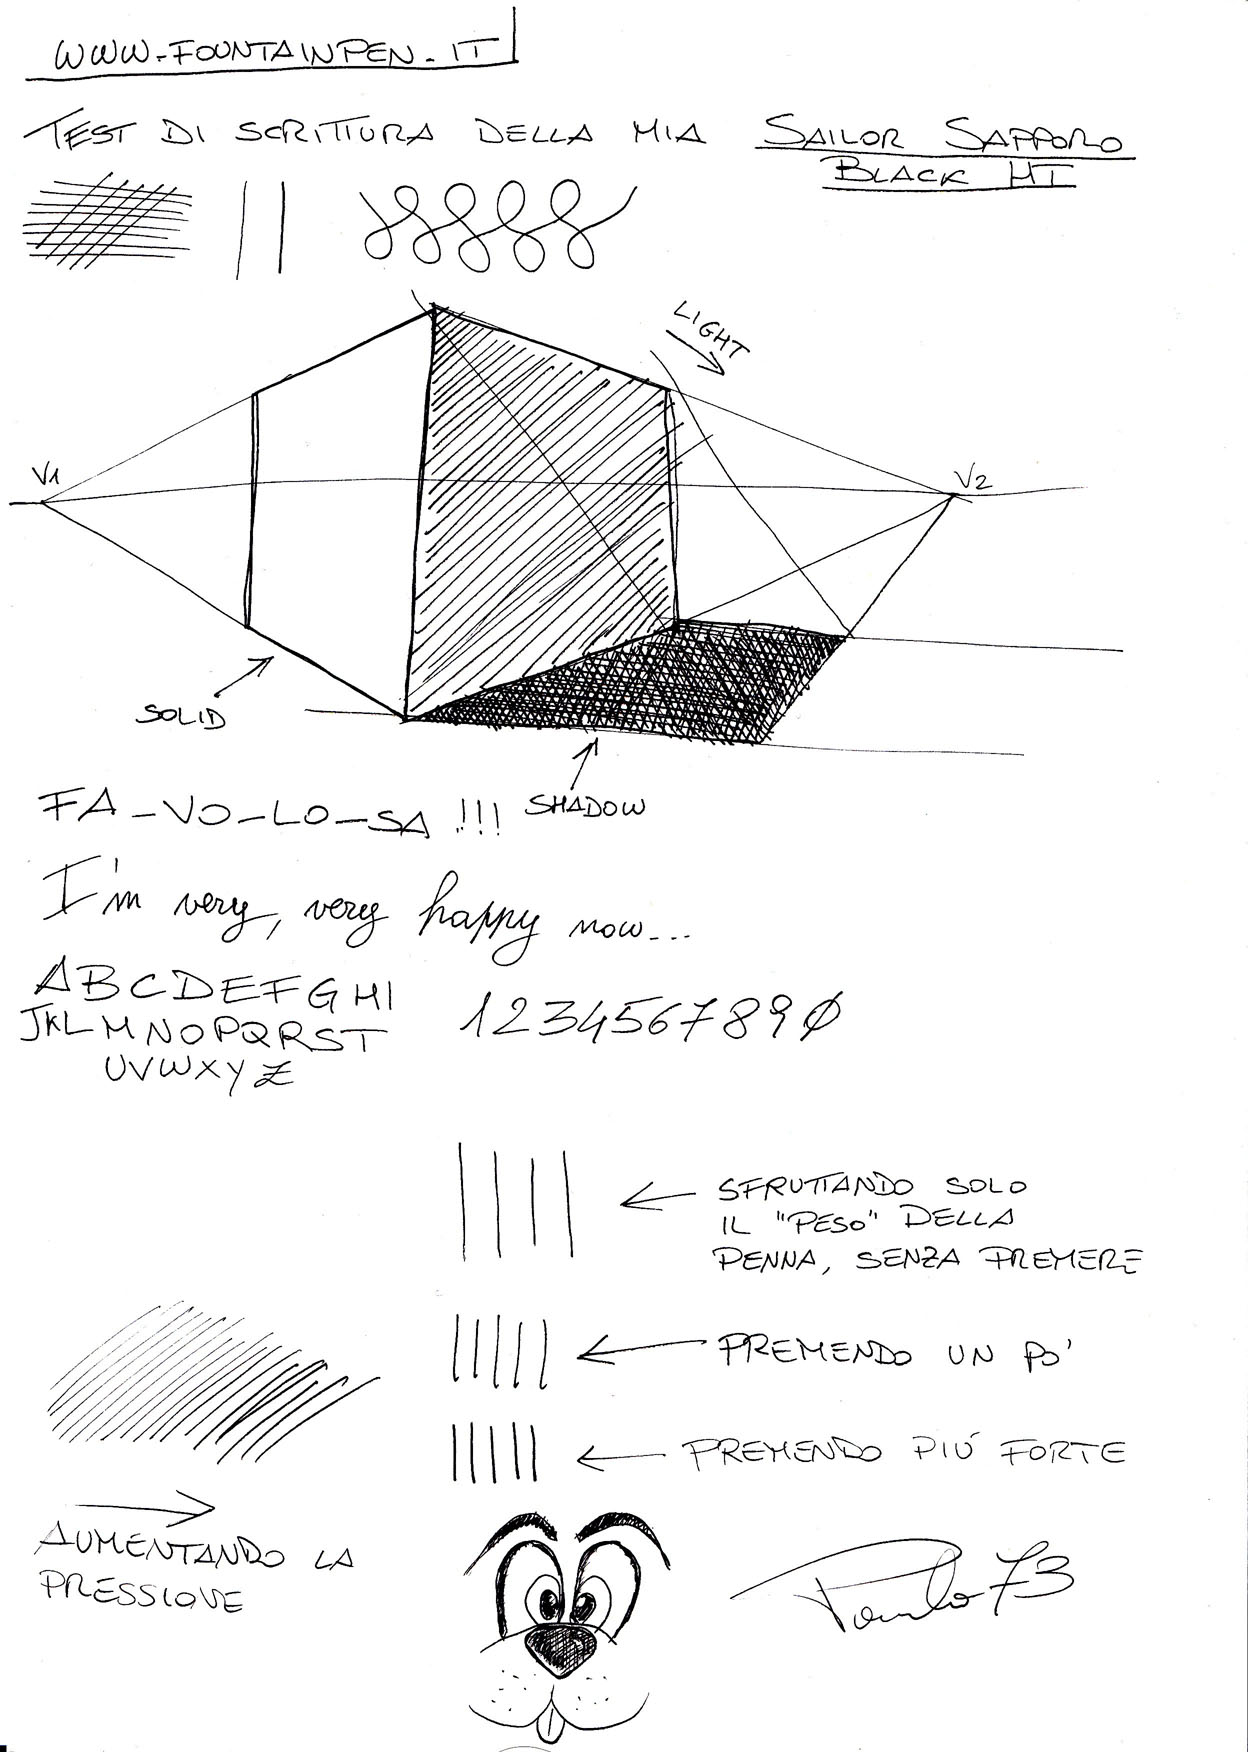 WWW.FOUNTAINPEN.IT
TEST DI SCRITTURA DELLA MIA SAILOR SAPPORO
BLACK HT
LIGHT
V1
V2
SOLID
SHADOW
FA-VO-LO-SA !!!
I'm very, very happy now...
ABCDEFGHI
JKLMNOPQRST
UVWXYZ
123456789Ø
SFRUTTANDO SOLO
IL "PESO" DELLA
PENNA, SENZA PREMERE
PREMENDO UN PO'
PREMENDO PIÚ FORTE
AUMENTANDO LA
PRESSIONE
73